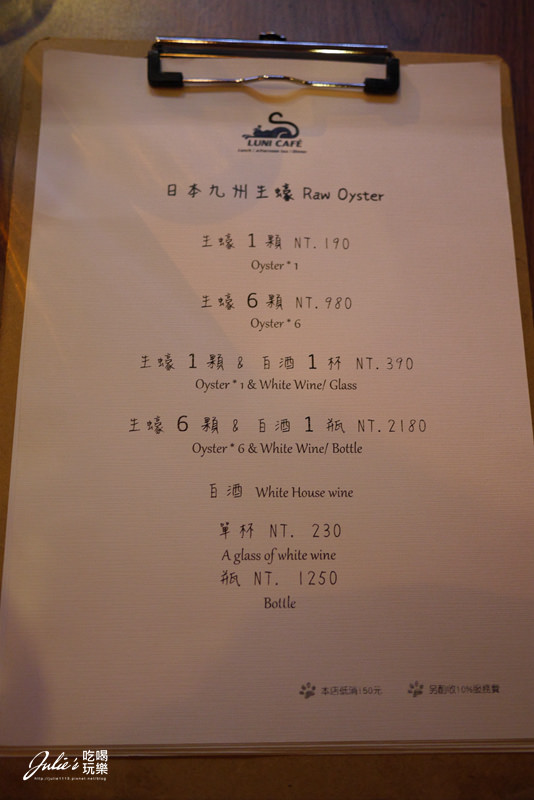 LUNI CAFÉ
Lunch / Afternoon tea / Dinner
日本九州生蠔 Raw Oyster
生蠔 1 顆 NT.190
Oyster * 1
生蠔 6 顆 NT.980
Oyster * 6
生蠔 1 顆 & 白酒 1 杯 NT.390
Oyster * 1 & White Wine/ Glass
生蠔 6 顆 & 白酒 1 瓶 NT.2180
Oyster * 6 & White Wine/ Bottle
白酒 White House wine
單杯 NT. 230
A glass of white wine
瓶 NT. 1250
Bottle
本店低消150元 另酌收10%服務費
Julie's 吃喝玩樂
http://julie1115.pixnet.net/blog